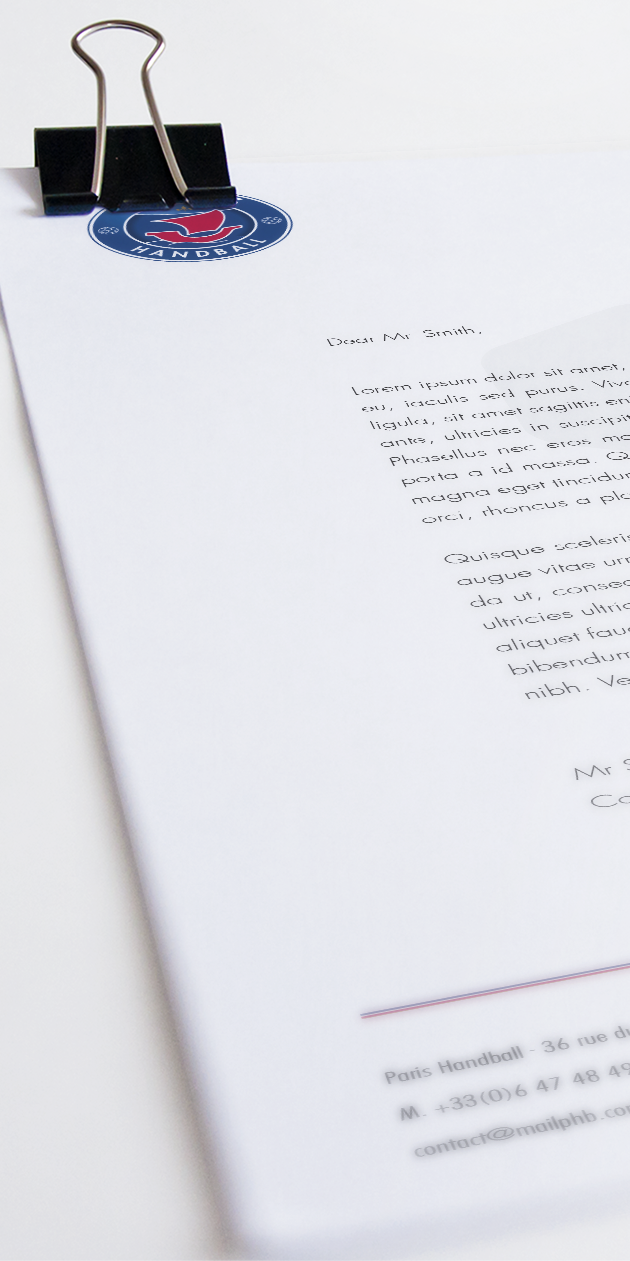 HANDBALL
Dear Mr Smith,
Lorem ipsum dolor sit amet,
eu, iaculis sed purus. Viv
ligula, sit amet sagittis en
ante, ultricies in suscipit
Phasellus nec eros ma
porta a id massa. Q
magna eget tincidun
orci, rhoncus a pla
Quisque sceleris
augue vitae urn
da ut, consec
ultricies ultric
aliquet fauc
bibendum
nibh. Ve
Mr S
Co
Paris Handball - 36 rue du
M. +33(0)6 47 48 49
contact@mailphb.com